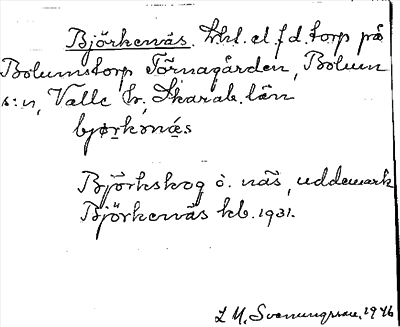 Björkenäs. Lht. el. f.d. torp på
Bolumstorp Törnagården, Bolum
s:n, Valle hr, Skarab. län
bjørkənæs
Björkskog o. näs, uddemark
Björkenäs kb. 1931.
L M. Svenungsson, 1946